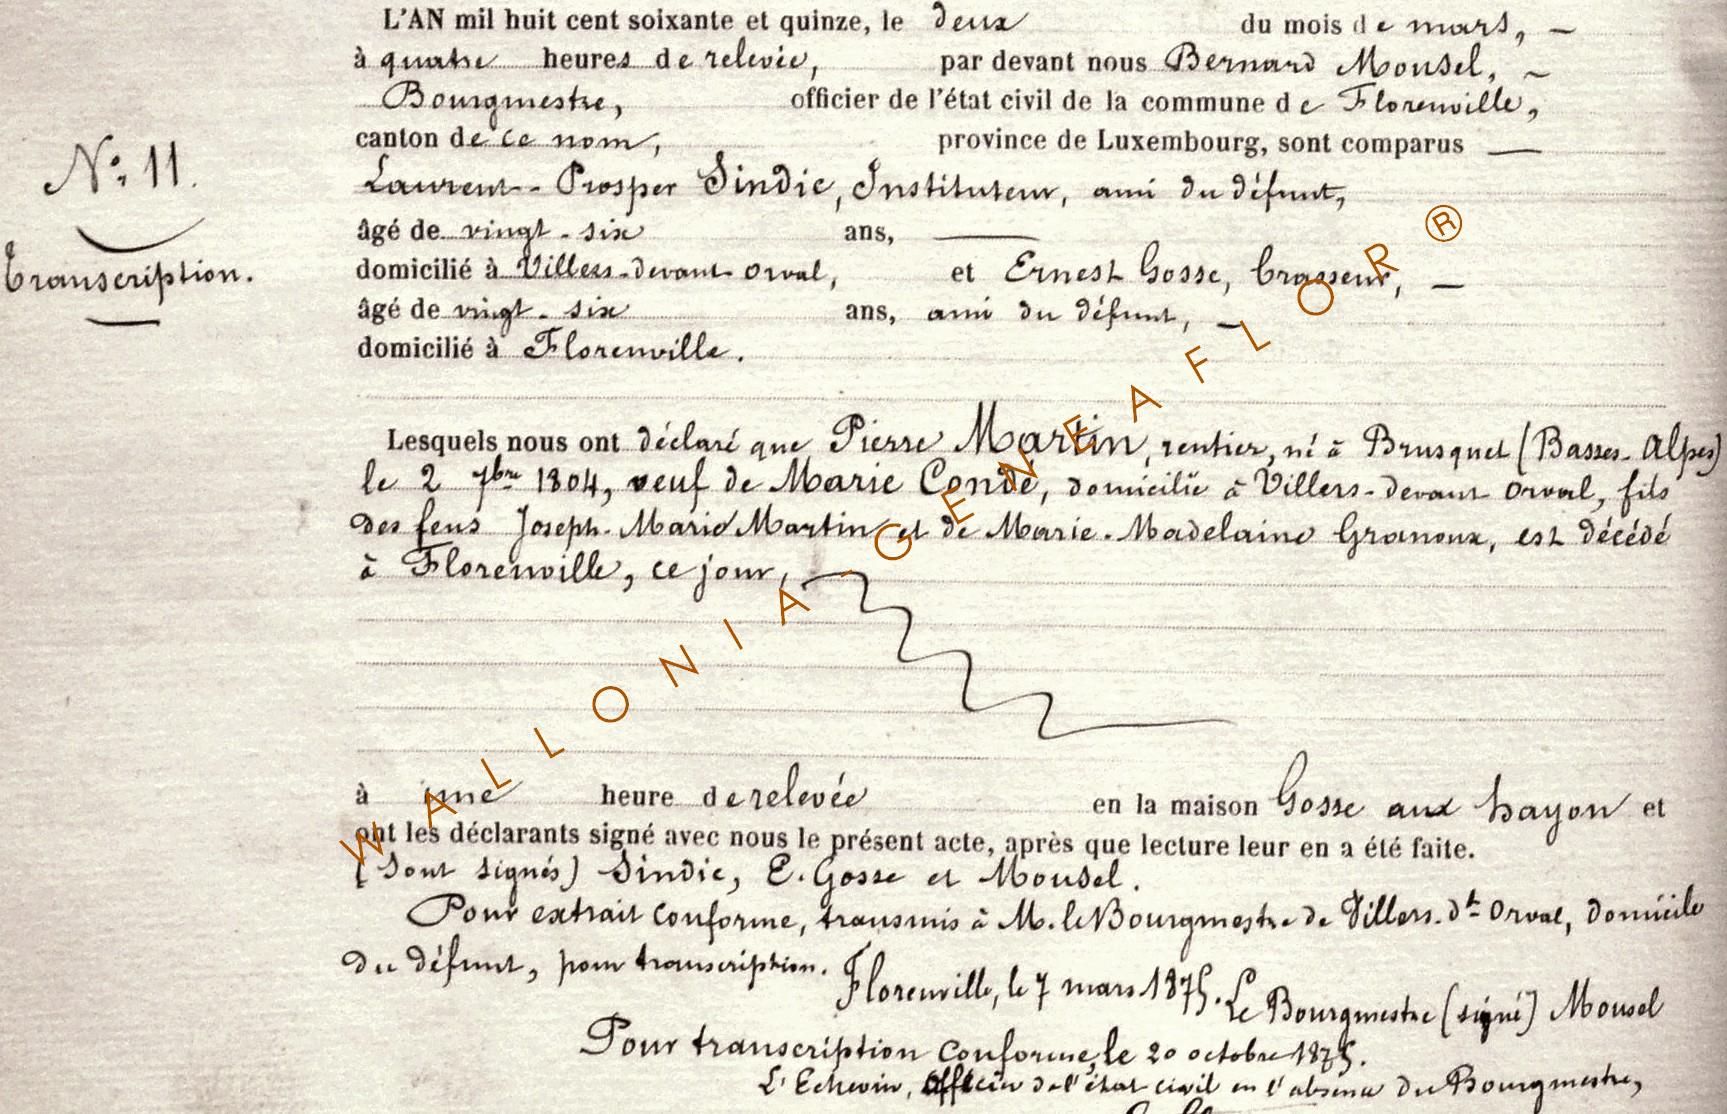 L'AN mil huit cent soixante et quinze, le deux du mois de mars, —
à quatre heures de relevée, par devant nous Bernard Mousel, —
Bourgmestre, officier de l'état civil de la commune de Florenville,
canton de ce nom, province de Luxembourg, sont comparus —
N°: 11.
Laurent-Prosper Sindic, Instituteur, ami du défunt,
âgé de vingt-six ans, —
Transcription.
domicilié à Villers-devant Orval, et Ernest Gosse, brasseur, —
âgé de vingt-six ans, ami du défunt, —
domicilié à Florenville.
Lesquels nous ont déclaré que Pierre Martin, rentier, né à Brusquet (Basses-Alpes)
le 2 7bre 1804, veuf de Marie Condé, domicilié à Villers-devant Orval, fils
des feus Joseph-Marie Martin et de Marie-Madelaine Granoux, est décédé
à Florenville, ce jour,
à une heure de relevée en la maison Gosse aux hayon et
ont les déclarants signé avec nous le présent acte, après que lecture leur en a été faite.
(Sont signés) Sindic, E. Gosse et Mousel.
Pour extrait conforme, transmis à M. le Bourgmestre de Villers-dt-Orval, domicile
du défunt, pour transcription.
Florenville, le 7 mars 1875. Le Bourgmestre (signé) Mousel
Pour transcription conforme, le 20 octobre 1875.
L'Echevin, officier de l'état civil en l'absence du Bourgmestre,
WALLONIA-GENEAFLOR ®